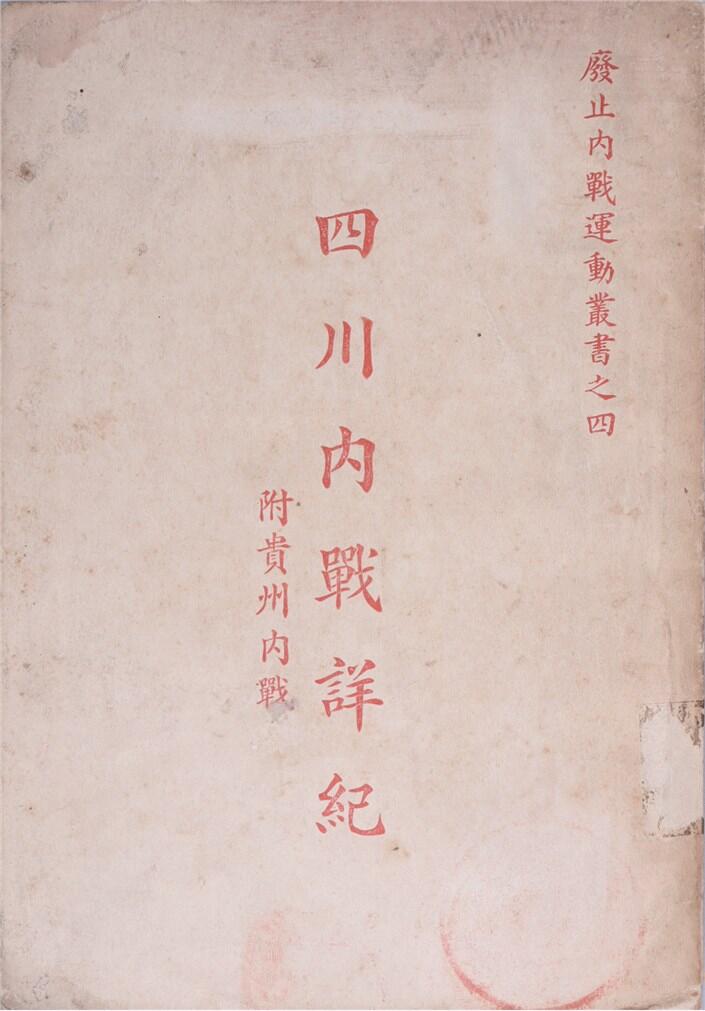 廢止内戰運動叢書之四
四川内戰詳紀
附貴州内戰